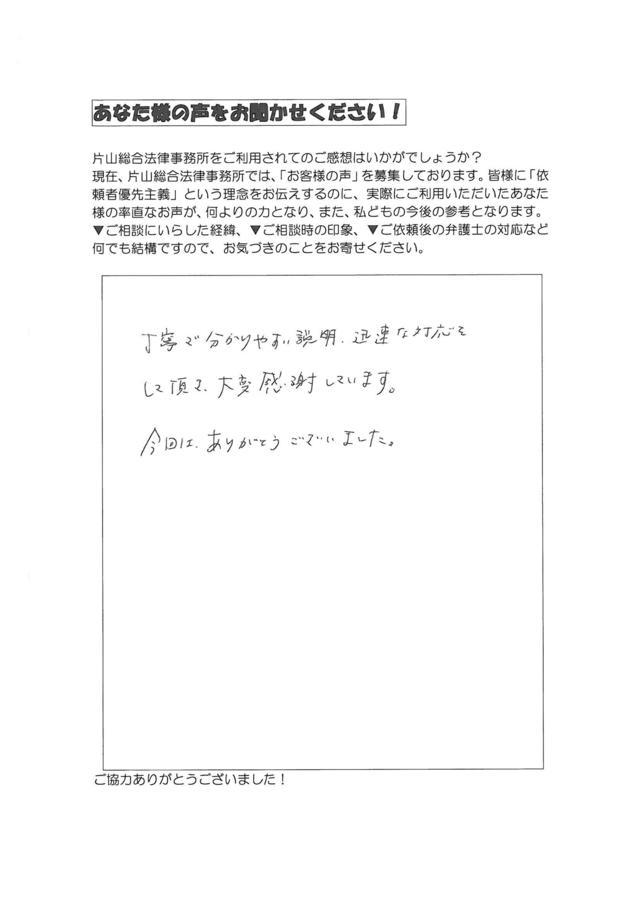 あなた様の声をお聞かせください！
片山総合法律事務所をご利用されてのご感想はいかがでしょうか？
現在、片山総合法律事務所では、「お客様の声」を募集しております。皆様に「依
頼者優先主義」という理念をお伝えするのに、実際にご利用いただいたあなた
様の率直なお声が、何よりの力となり、また、私どもの今後の参考となります。
▼ご相談にいらした経緯、▼ご相談時の印象、▼ご依頼後の弁護士の対応など
何でも結構ですので、お気づきのことをお寄せください。
丁寧で分かりやすい説明、迅速な対応を
して頂き、大変感謝しています。
今回は、ありがとうございました。
ご協力ありがとうございました！